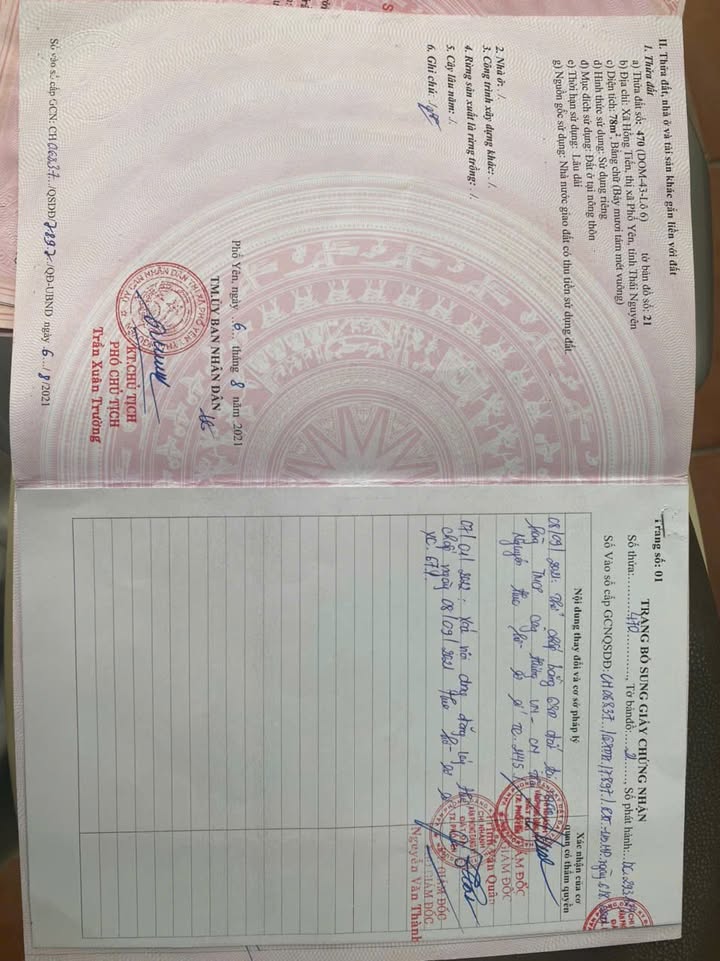 II. Thửa đất, nhà ở và tài sản khác gắn liền với đất
1. Thửa đất
a) Thửa đất số: 470 (DOM-43-Lô 6) tờ bản đồ số: 21
b) Địa chỉ: Xã Hồng Tiến, thị xã Phổ Yên, tỉnh Thái Nguyên
c) Diện tích: 78m², Bằng chữ (Bảy mươi tám mét vuông)
d) Hình thức sử dụng: Sử dụng riêng
đ) Mục đích sử dụng: Đất ở tại nông thôn
e) Thời hạn sử dụng: Lâu dài
g) Nguồn gốc sử dụng: Nhà nước giao đất có thu tiền sử dụng đất.
2. Nhà ở: ./.
3. Công trình xây dựng khác: ./.
4. Rừng sản xuất là rừng trồng: ./.
5. Cây lâu năm: ./.
6. Ghi chú: ./.
Phổ Yên, ngày 6 tháng 8 năm 2021
TM.ỦY BAN NHÂN DÂN
KT.CHỦ TỊCH
PHÓ CHỦ TỊCH
Trần Xuân Trường
Số vào sổ cấp GCN: CH06837../QSDĐ/7897/QĐ-UBND ngày 6../8/2021
Trang số: 01
TRANG BỔ SUNG GIẤY CHỨNG NHẬN
Số thửa:..........470..........., Tờ bản đồ:....21......, Số phát hành:..DC 293
Số Vào sổ cấp GCNQSDĐ: CH06837../QSDĐ/7897/
Nội dung thay đổi và cơ sở pháp lý
Xác nhận của cơ quan có thẩm quyền
08/09/2021: Thế chấp bằng QSD đất tại
hàng TMCP Công thương VN - CN
Nguyên theo hồ sơ số TC.245
GIÁM ĐỐC
GIÁM ĐỐC
Văn Quân
07/01/2022: Xoá nội dung đăng ký thế
chấp ngày 08/09/2021 theo hồ sơ số
XC.674
GIÁM ĐỐC
GIÁM ĐỐC
Nguyễn Văn Thành